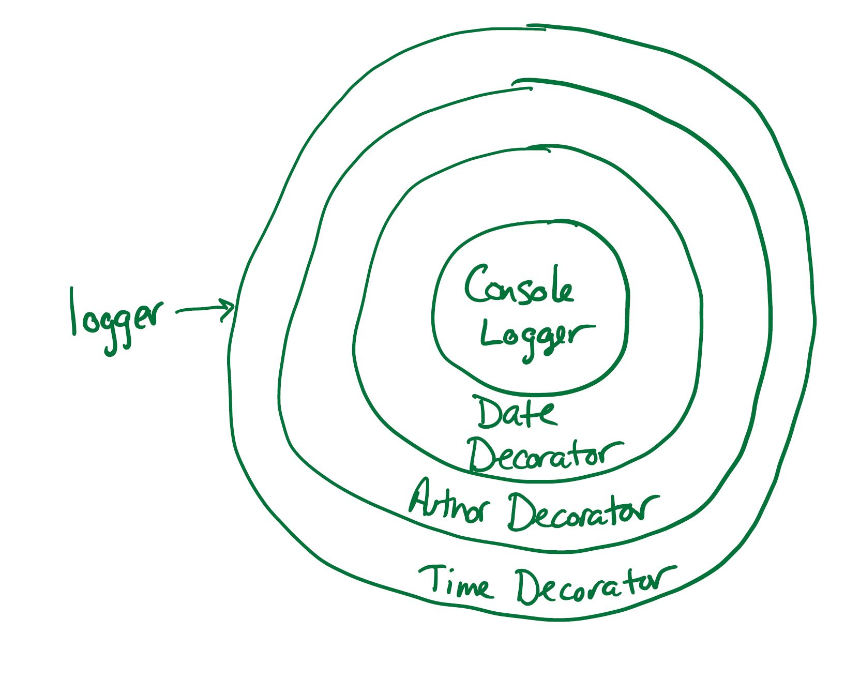 logger
Console
Logger
Date
Decorator
Author Decorator
Time Decorator